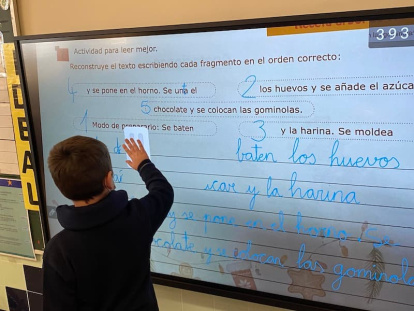 393
Actividad para leer mejor.
Reconstruye el texto escribiendo cada fragmento en el orden correcto:
4 y se pone en el horno. Se unta el
2 los huevos y se añade el azúca
5 chocolate y se colocan las gominolas.
1 Modo de Se baten
3 y la harina. Se moldea
baten los huevos
car y la harina
y se pone en el horno. Se
ocolate y se colocan las gominola
DEAL